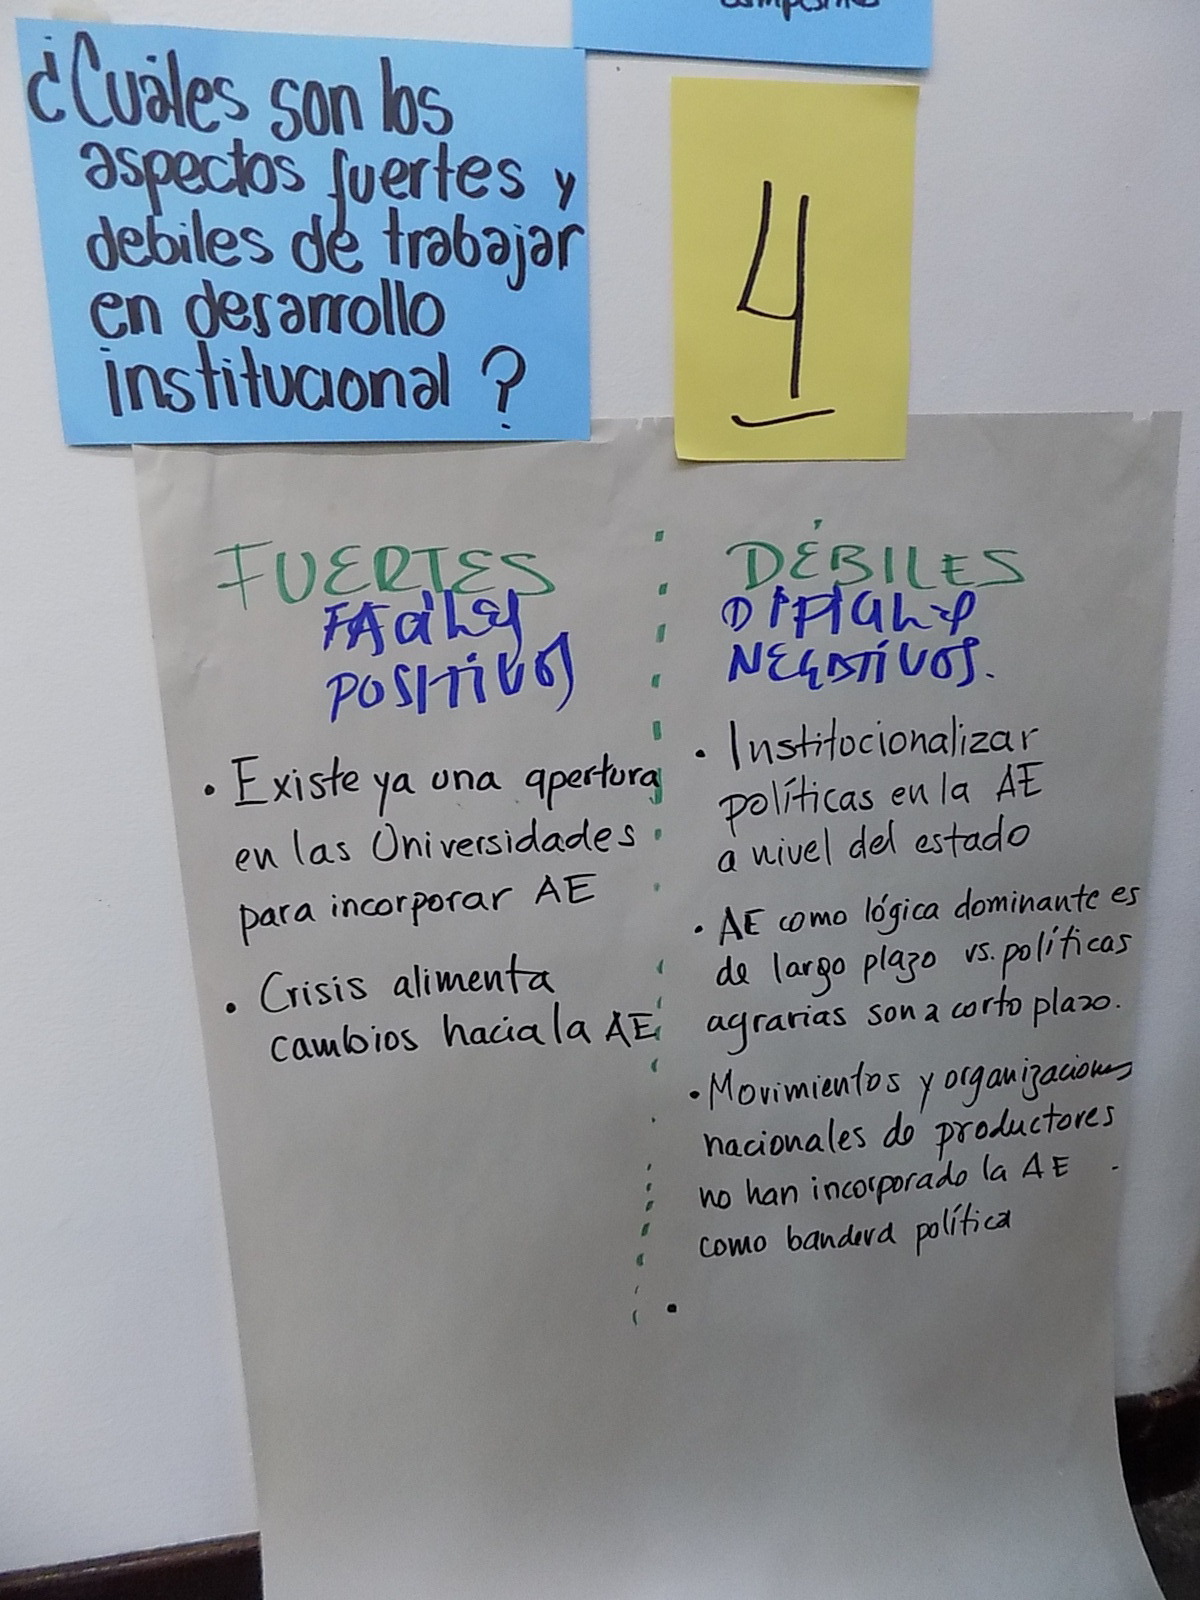 ¿Cuáles son los
aspectos fuertes y
debiles de trabajar
en desarrollo
institucional ?
4
FUERTES
FACILES
POSITIVOS
• Existe ya una apertura
en las Universidades
para incorporar AE
• Crisis alimenta
cambios hacia la AE
DÉBILES
DIFICILES
NEGATIVOS.
• Institocionalizar
políticas en la AE
a nivel del estado
• AE como lógica dominante es
de largo plazo vs. políticas
agrarias son a corto plazo.
• Movimientos y organizaciones
nacionales de productores
no han incorporado la AE
como bandera política
•